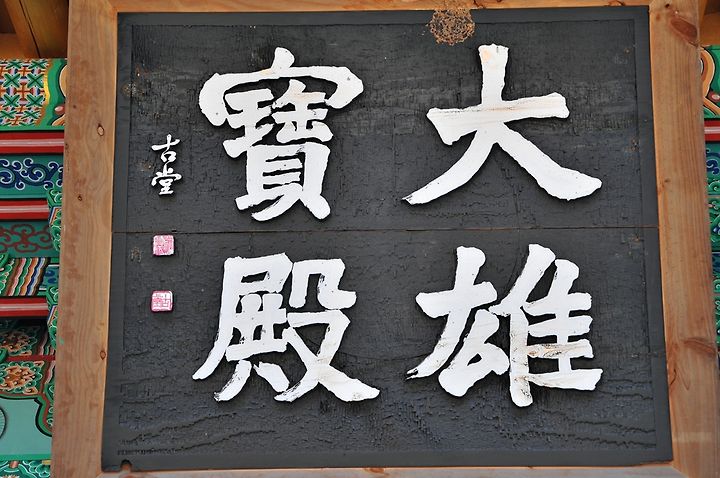 大雄
寶殿
古堂